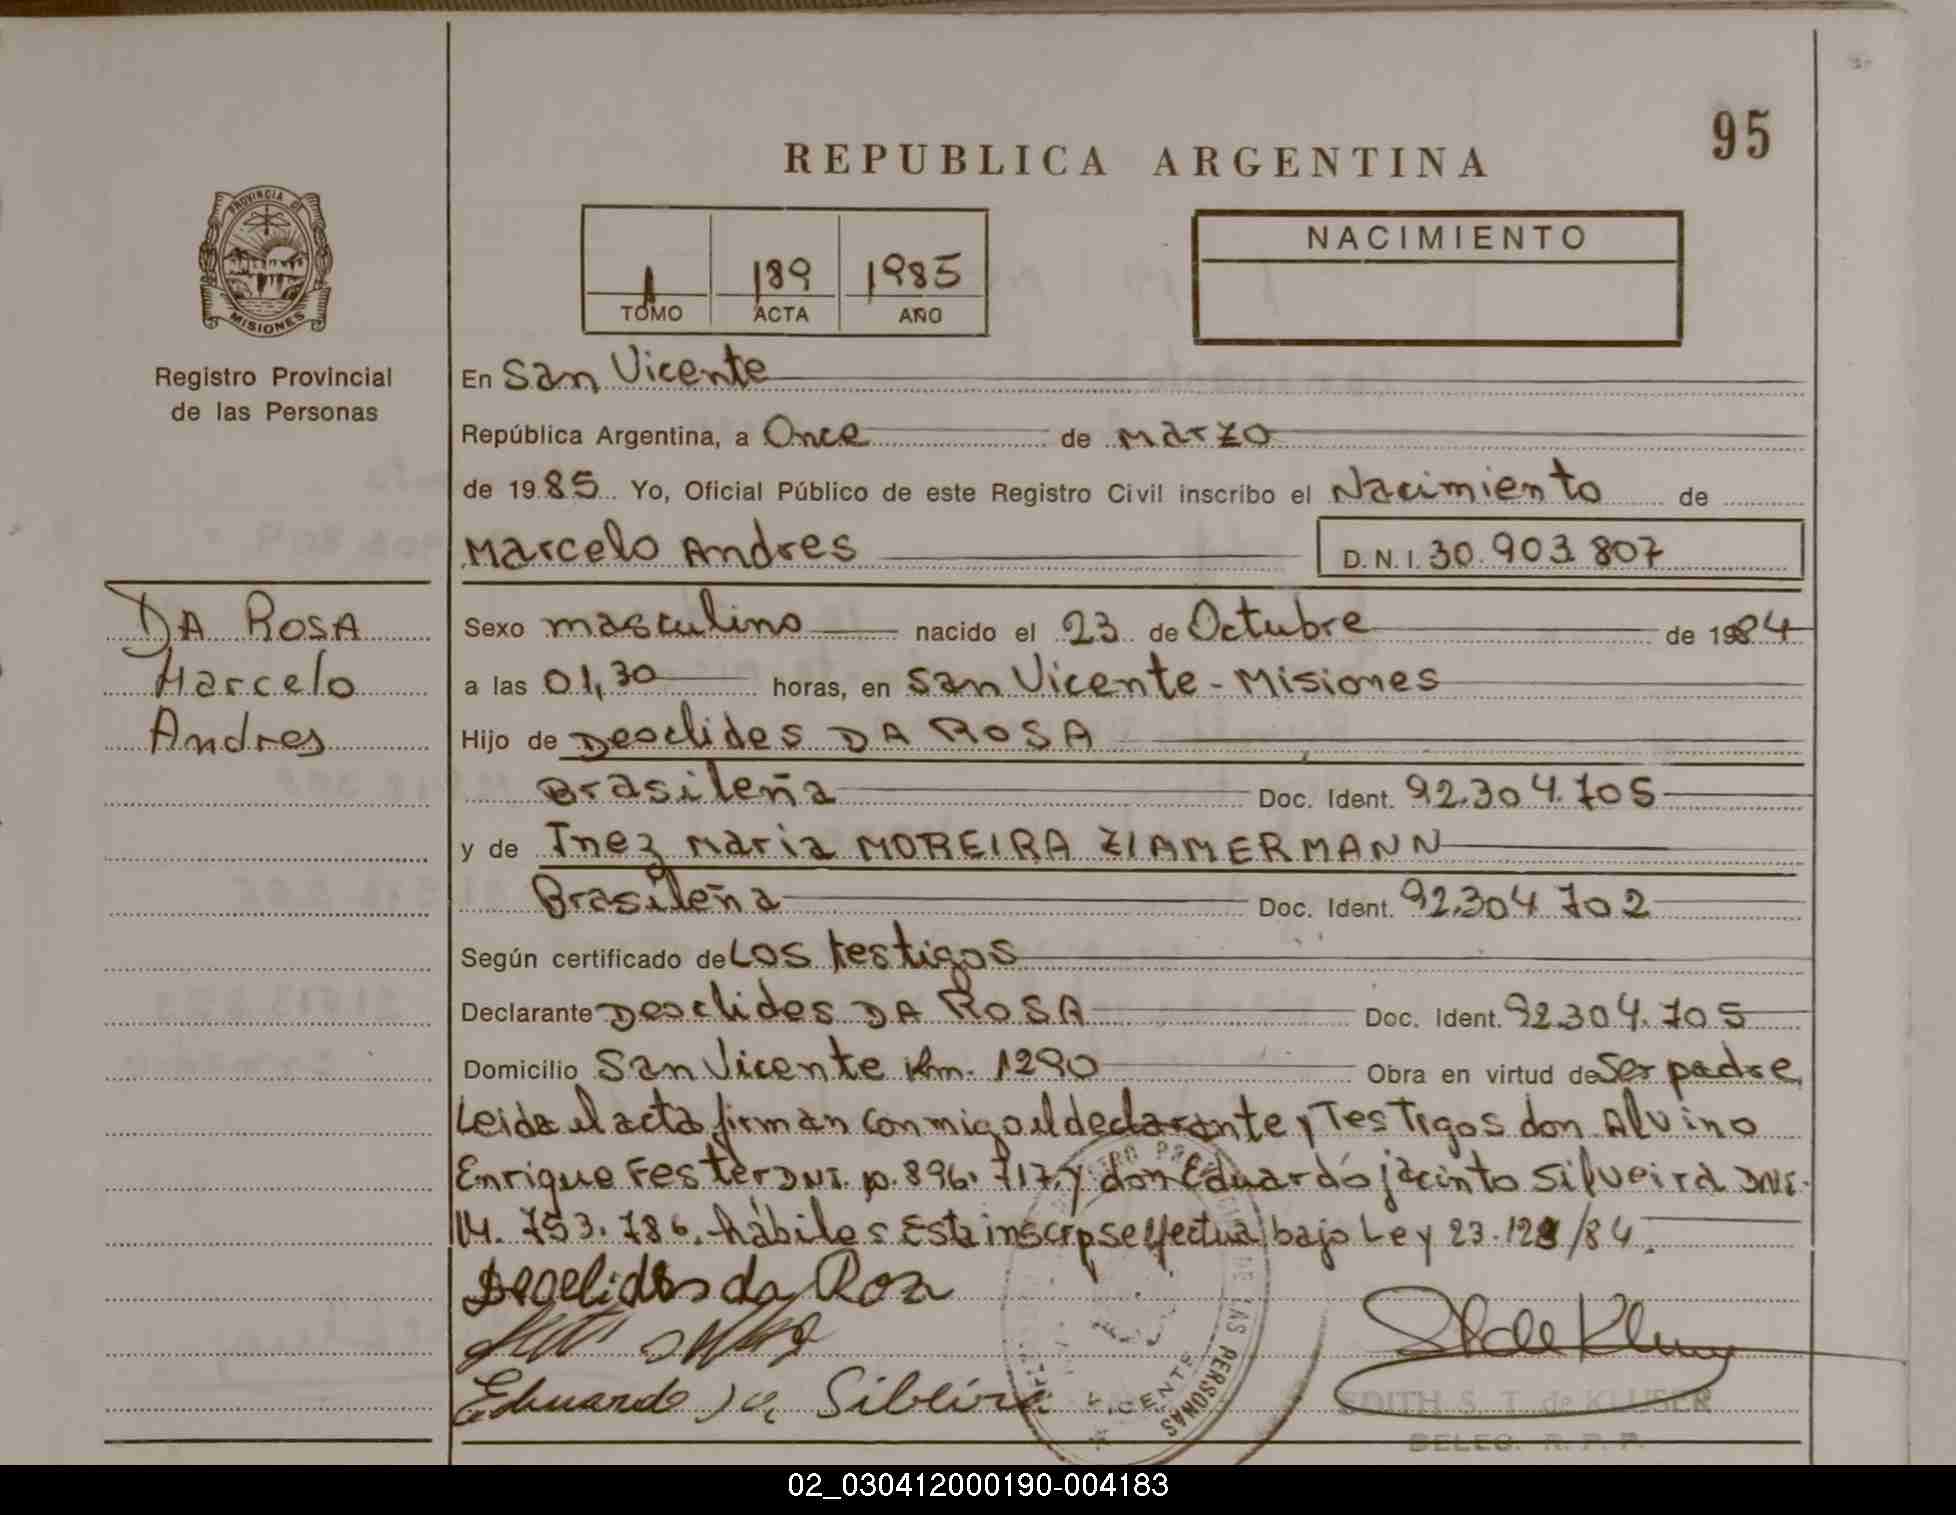 95
REPUBLICA ARGENTINA
PROVINCIA DE
MISIONES
Registro Provincial
de las Personas
1 189 1985
TOMO ACTA AÑO
NACIMIENTO
En San Vicente
República Argentina, a Once de Marzo
de 1985 Yo, Oficial Público de este Registro Civil inscribo el Nacimiento de
Marcelo Andres D.N.I. 30.903.807
DA ROSA
Marcelo
Andres
Sexo masculino nacido el 23 de Octubre de 1984
a las 01,30 horas, en San Vicente - Misiones
Hijo de Deoclides DA ROSA
Brasileña Doc. Ident. 92.304.705
y de Inez Maria MOREIRA ZIAMERMANN
Brasileña Doc. Ident. 92.304.702
Según certificado de Los testigos
Declarante Deoclides DA ROSA Doc. Ident. 92.304.705
Domicilio San Vicente Km. 1290 Obra en virtud de Ser padre,
Leida el acta firman conmigo el declarante y Testigos don Alvino
Enrique Fester DNI. 10.896.717, y don Eduardo jacinto Silveira DNI.
14.753.786. hábiles Esta inscrp se efectua bajo Ley 23.128/84.
Deoclides da Roza
Eduardo Silveira
VICENTE
DE LAS PERSONAS
EDITH S. T. de KLUSER
DELEG. R. P. P.
02_030412000190-004183